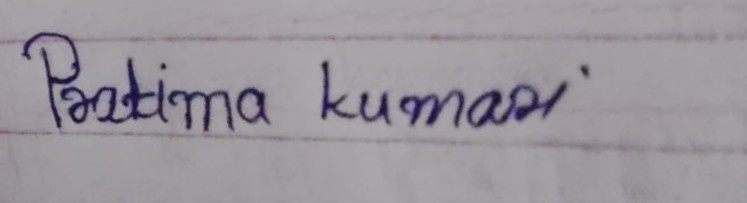 Pratima kumari